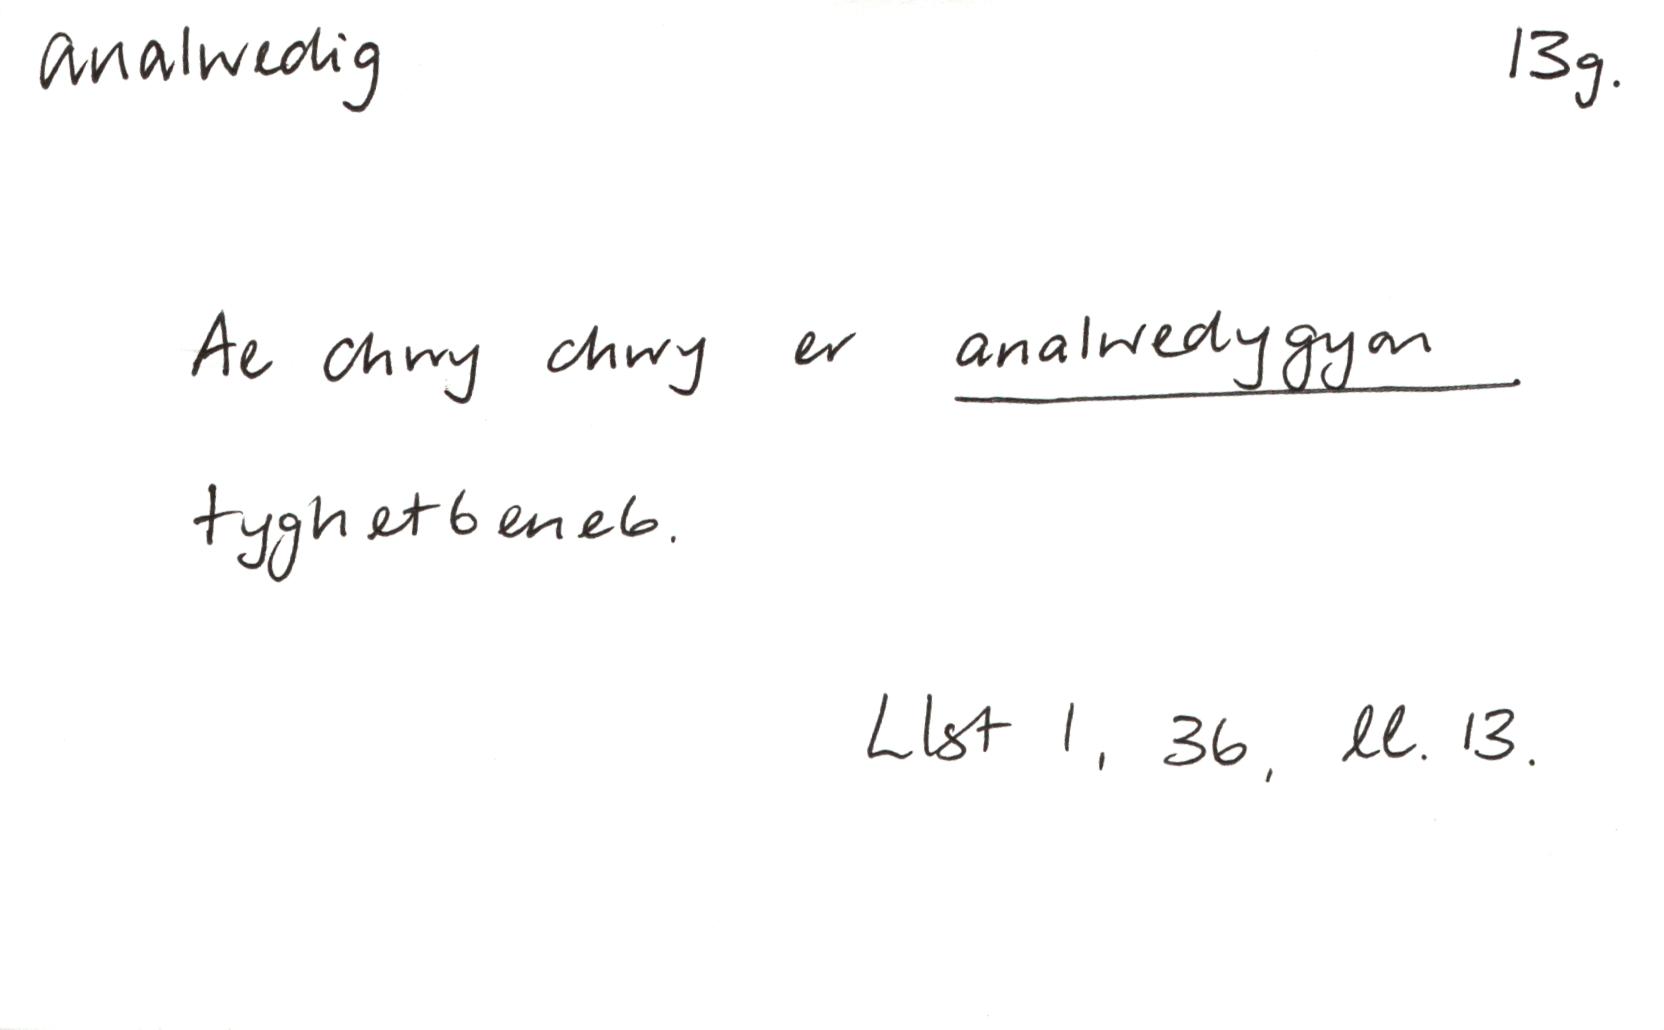 analwedig 13g.
Ae chwy chwy er analwedygyon
tyghet6ene6.
Llst 1, 36, ll. 13.